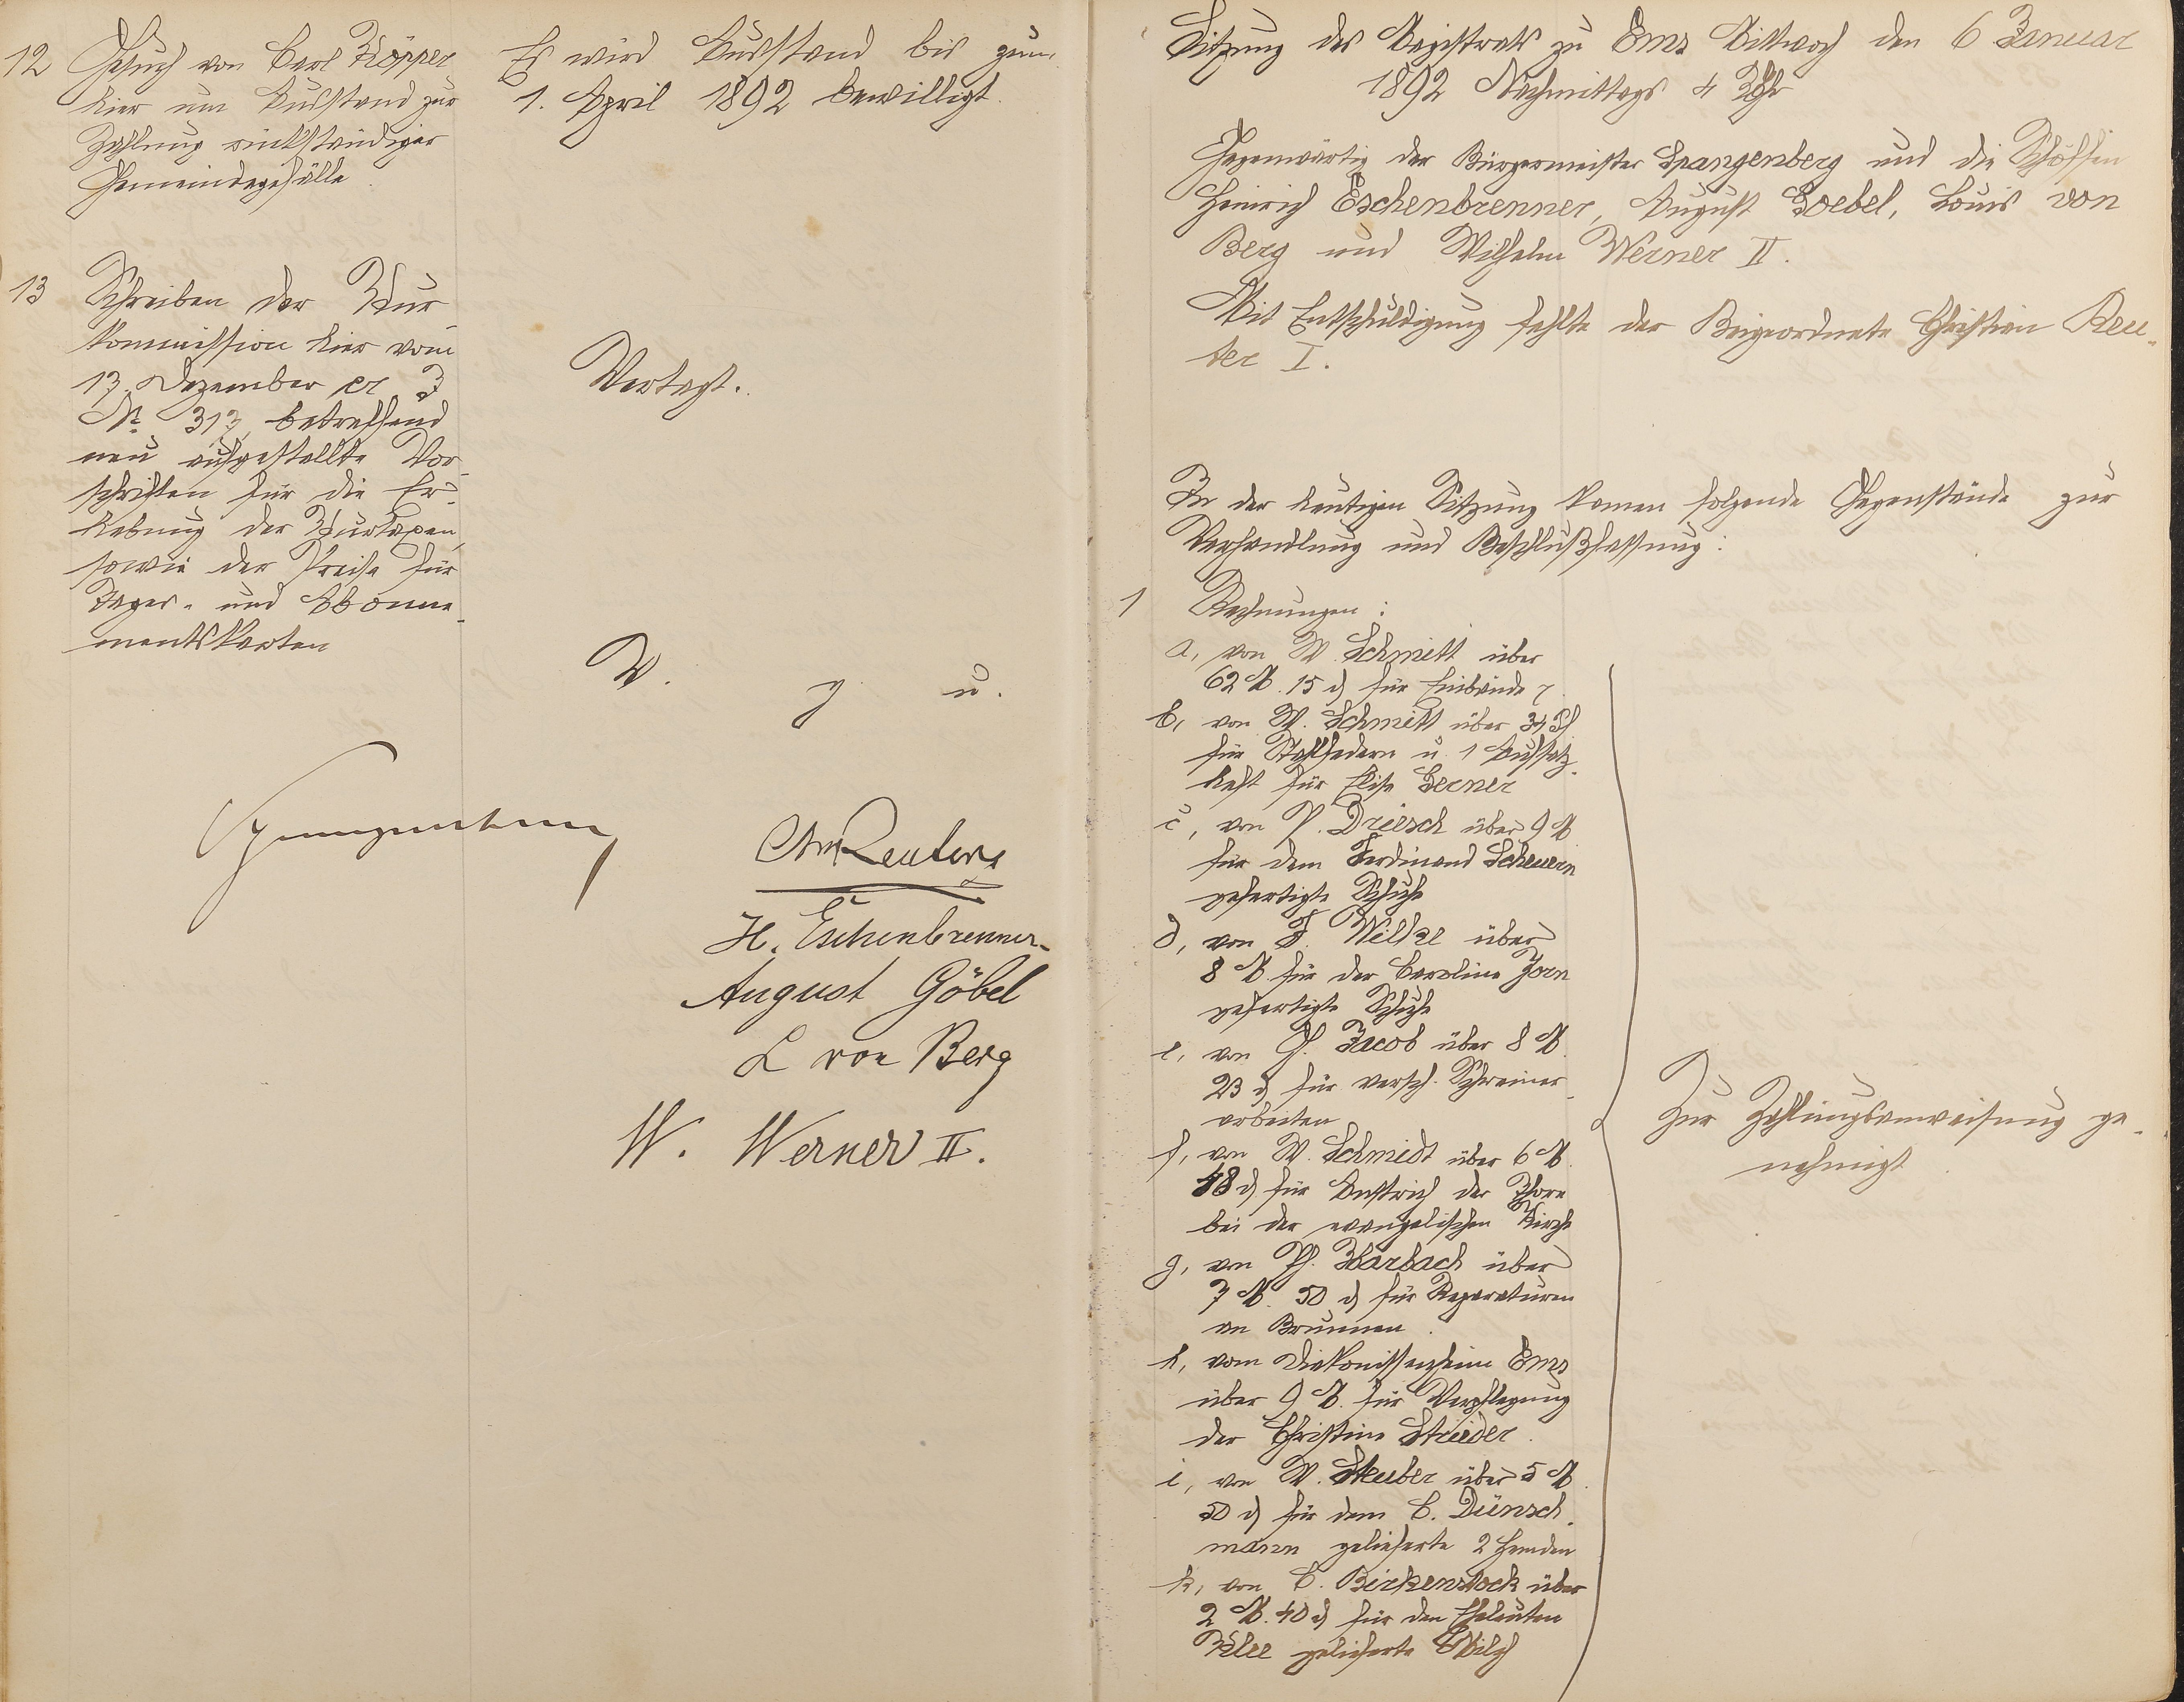 12 Gesuch von Carl Köpper
hier um Ausstand zur
Zahlung rückständiger
Gemeindegefälle.
Es wird Ausstand bis zum
1. April 1892 bewilligt.
13 Schreiben der Kur-
kommission hier vom
17. Dezember cr J
No 313, betreffend
neu aufgestellte Vor-
schriften für die Er-
hebung der Kurtaxen,
sowie der Preise für
Tages- und Abonne-
mentskarten
Vertagt.
V. g. u.
Spangenberg
Chr Reuter I
H. Eschenbrenner
August Göbel
L von Berg
W. Werner II.
Sitzung des Magistrats zu Ems Mittwoch den 6 Januar
1892 Nachmittags 4 Uhr
Gegenwärtig der Bürgermeister Spangenberg und die Schöffen
Heinrich Eschenbrenner, August Goebel, Louis von
Berg und Wilhelm Werner II.
Mit Entschuldigung fehlte der Beigeordnete Christian Reu-
ter I.
In der heutigen Sitzung kamen folgende Gegenstände zur
Verhandlung und Beschlußfassung:
1 Rechnungen:
a, von W. Schmitt über
62 M. 15 d für Einbände
b, von W. Schmitt über 34 d
für Stahlfedern u. 1 Aufsatz-
heft für Elise Gerner
c, von P. Driesch über 9 M
für dem Ferdinand Scheuern
gefertigte Schuhe
d, von F. Wilke über
8 M für der Caroline Zorn
gefertigte Schuhe
e, von H. Jacob über 8 M.
23 d für versch. Schreiner-
arbeiten
f, von W. Schmidt über 6 M.
48 d für Anstrich der Thore
bei der evangelischen Kirche
g, von Ph. Harbach über
7 M. 50 d für Reparaturen
an Brunnen.
h, vom Diakonissenheim Ems
über 9 M. für Verpflegung
der Christine Strieder.
i, von W. Steuber über 5 M.
50 d für dem C. Dünsch-
mann gelieferte 2 Hemden
k, von C. Birkenstock über
2 M. 40 d für den Eheleuten
Klee gelieferte Milch
Zur Zahlungsanweisung ge-
nehmigt.